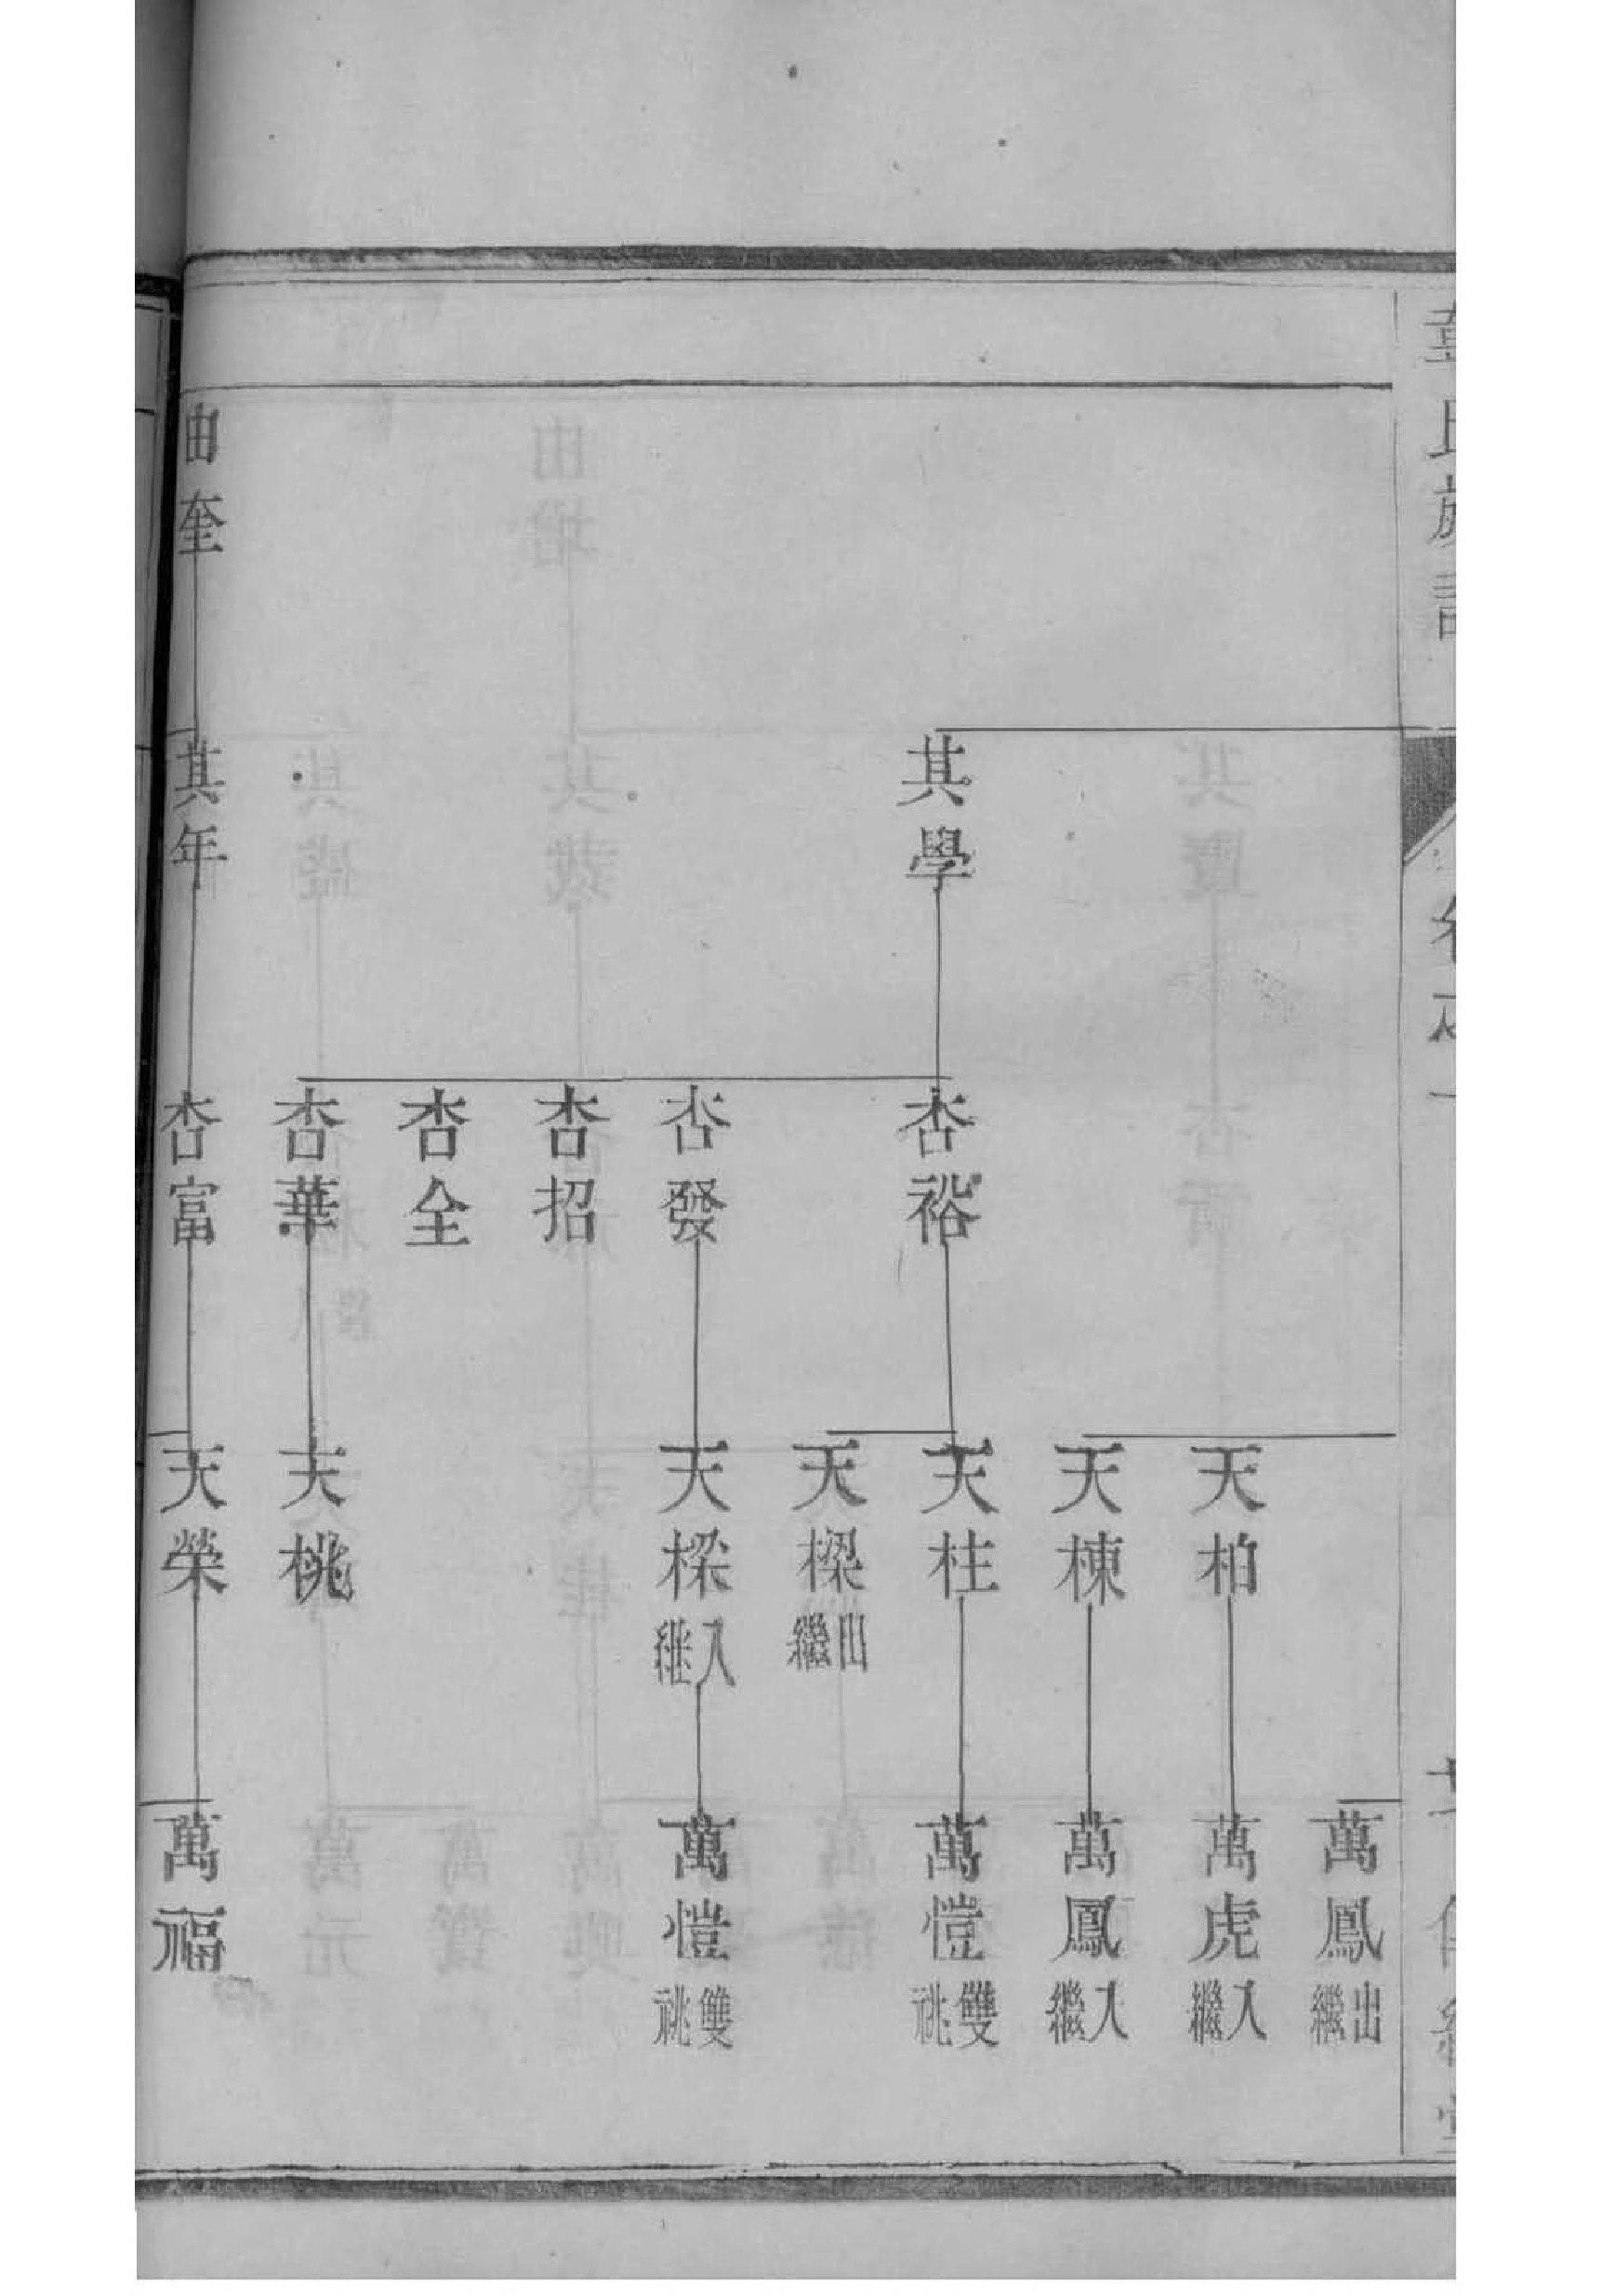 章氏族譜
卷之一
萬鳳 出繼
天柏
萬虎 入繼
天棟
萬鳳 入繼
其學
杏裕
天柱
萬愷 雙祧
天樑 出繼
杏發
天樑 入继
萬愷 雙祧
杏招
杏全
杏華
天桃
由奎
其年
杏富
天榮
萬福